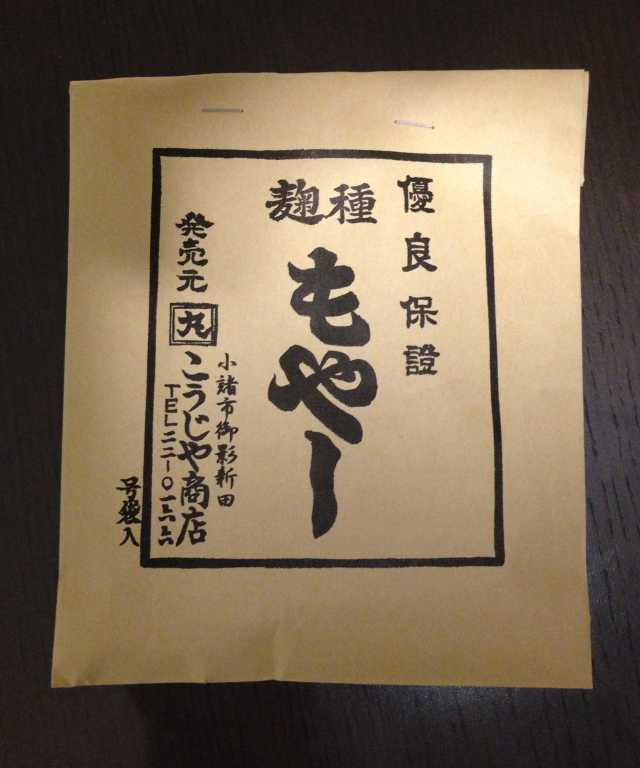 優良保證
種麹
もやし
小諸市御影新田
発売元 丸 こうじや商店
TEL二二-〇一六六
号袋入